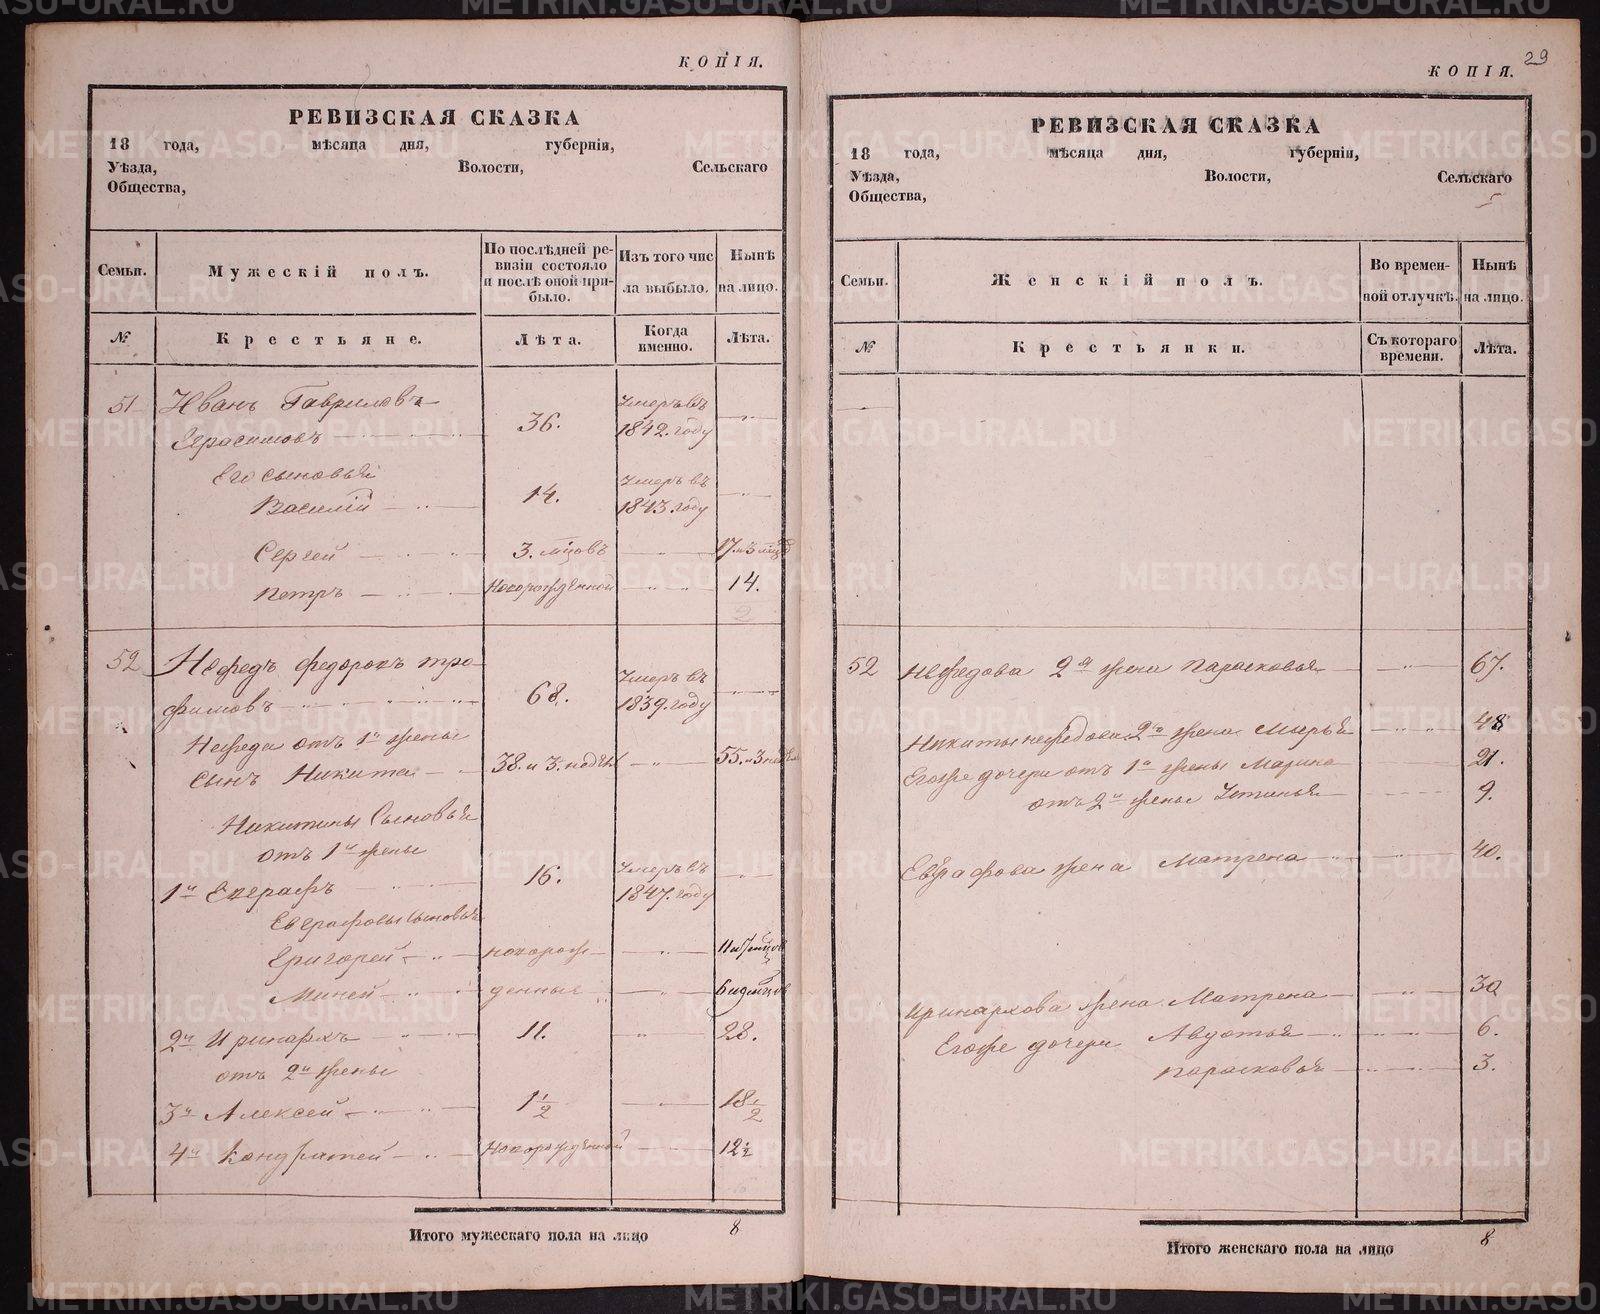 КОПІЯ.
РЕВИЗСКАЯ СКАЗКА
18 года, мѣсяца дня, губерніи,
Уѣзда, Волости, Сельскаго
Общества,
Семьи.
Мужескій полъ.
По послѣдней ре-
визіи состояло
и послѣ оной при-
было.
Изъ того чис
ла выбыло.
Нынѣ
на лицо.
№
Крестьяне.
Лѣта.
Когда
именно.
Лѣта.
51 Иванъ Гавриловъ
Герасимовъ 36. Умеръ въ
1842. году
Его сыновья
Василій 14. Умеръ въ
1843. году
Сергей 3. мѣсяцовъ 17 и 3 мѣсяц
Петръ Новорожденной 14.
2
52 Нефедъ Федоровъ Тро
фимовъ 68. Умеръ въ
1839. году
Нефеда отъ 1й жены
сынъ Никита 38. и 3. недѣли 55. и 3 недѣли
Никитины Сыновья
отъ 1й жены
1й Евграфъ 16. Умеръ въ
1847. году
Евграфовы Сыновья
Григорей новорож
Миней денные
2й Иринархъ 11. 28.
отъ 2й жены
3й Алексей 1 1/2 18 1/2
4й Кондратей Новорожденной 12 1/2
Итого мужескаго пола на лицо 8
29
КОПІЯ.
РЕВИЗСКАЯ СКАЗКА
18 года, мѣсяца дня, губерніи,
Уѣзда, Волости, Сельскаго
Общества,
Семьи.
Женскій полъ.
Во времен-
ной отлучкѣ.
Нынѣ
на лицо.
№
Крестьянки.
Съ котораго
времени.
Лѣта.
52 Нефедова 2я жена Парасковья 67.
Никиты Нефедова 2я жена Марья 48
Егоже дочери отъ 1й жены Марина 21.
отъ 2й жены Устинья 9.
Евграфова жена Матрена 40.
Иринархова жена Матрена 30
Егоже дочери Авдотья 6.
Парасковья 3.
Итого женскаго пола на лицо 8
METRIKI.GASO-URAL.RU